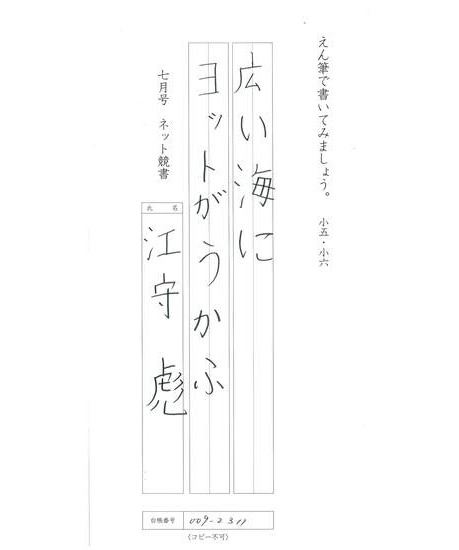 えん筆で書いてみましょう。 小五・小六
広い海に
ヨットがうかふ
七月号 ネット競書
氏名
江守 彪
台帳番号 009-2311
〈コピー不可〉